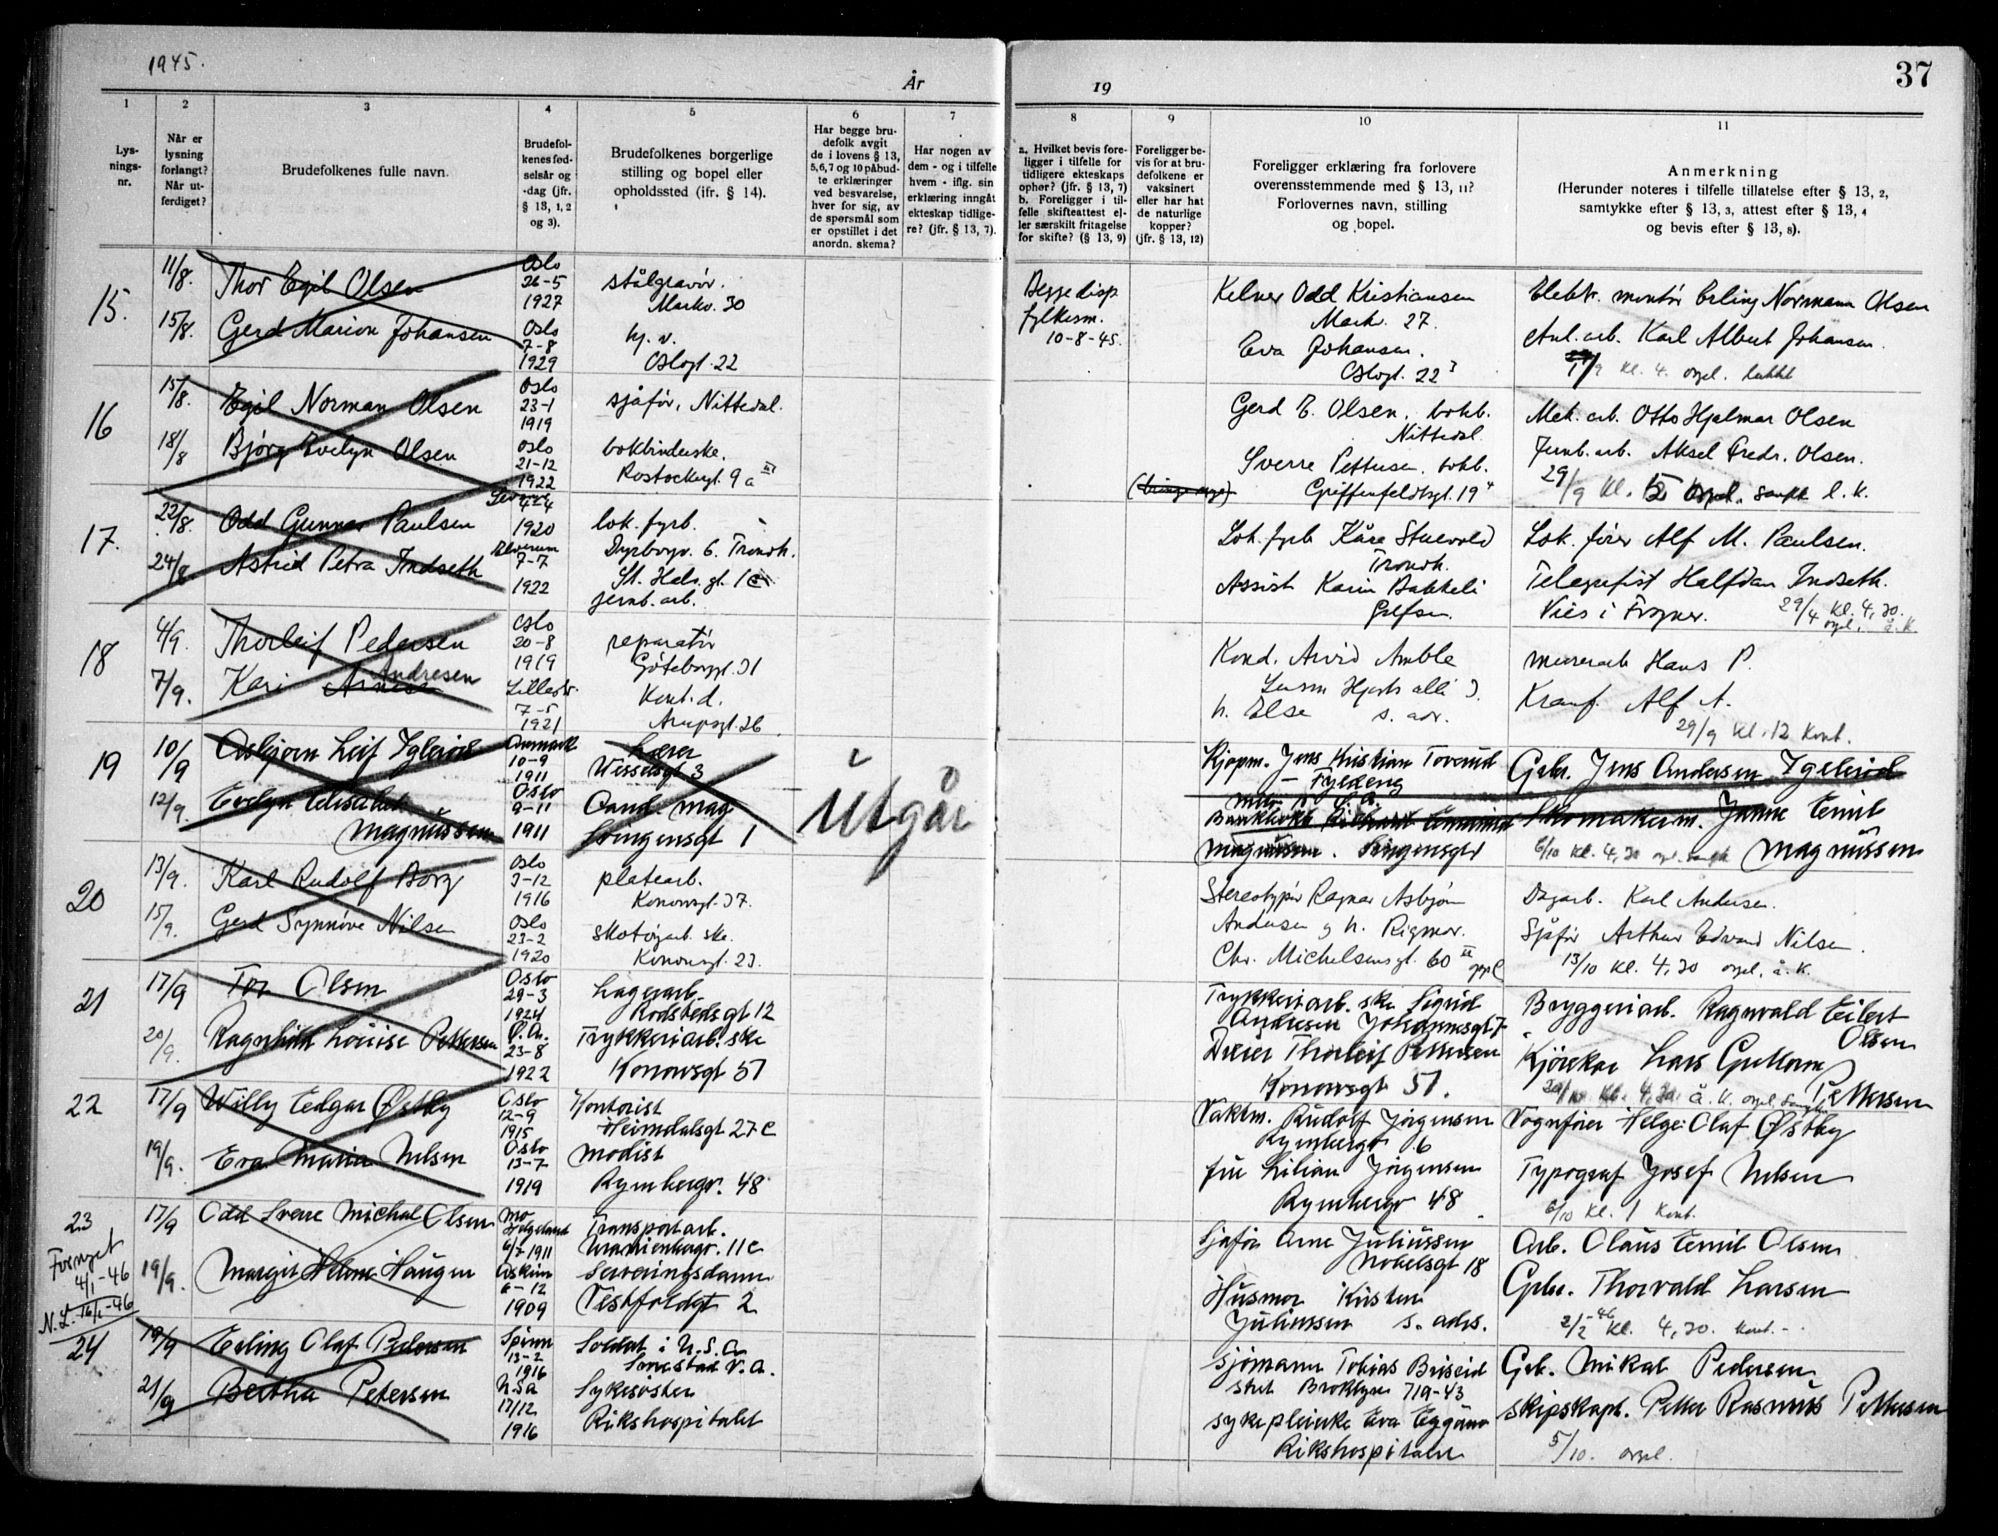 1945.
År
19
37
1
2
3
4
5
6
7
8
9
10
11
Lys-
nings-
nr.
Når er
lysning
forlangt?
Når ut-
ferdiget?
Brudefolkenes fulle navn.
Brudefol-
kenes fød-
selsår og
-dag (jfr.
§ 13, 1, 2
og 3).
Brudefolkenes borgerlige
stilling og bopel eller
opholdssted (ifr. § 14).
Har begge bru-
defolk avgit
de i lovens § 13,
5, 6, 7 og 10 påbud-
te erklæringer
ved besvarelse,
hver for sig, av
de spørsmål som
er opstillet i det
anordn. skema?
Har nogen av
dem - og i tilfelle
hvem - iflg. sin
erklæring inngåt
ekteskap tidlige-
re? (jfr. § 13, 7).
a. Hvilket bevis fore-
ligger i tilfelle for
tidligere ekteskaps
ophør? (jfr. § 13, 7)
b. Foreligger i til-
felle skifteattest el-
ler særskilt fritagelse
for skifte? (§ 13, 9)
Foreligger be-
vis for at bru-
defolkene er
vaksinert
eller har hat
de naturlige
kopper?
(jfr. § 13, 12)
Foreligger erklæring fra forlovere
overensstemmende med § 13, 11?
Forlovernes navn, stilling
og bopel.
Anmerkning
(Herunder noteres i tilfelle tillatelse efter § 13, 2,
samtykke efter § 13, 3, attest efter § 13, 4
og bevis efter § 13, 8).
15.
11/8.
Thor Egil Olsen
Oslo
26-5
1927
stålgravør.
Markv. 30
Begge disp
fylkesm.
10-8-45.
Kelner Odd Kristiansen
Markv. 27.
Elektr. montør Erling Normann Olsen
15/8.
Gerd Marion Johansen
Oslo
7-8
1929
hj. v.
Oslogt. 22
Eva Johansen.
Oslogt. 22
Anl. arb. Karl Albert Johansen.
kl. 4. orgel. lukket
16
15/8.
Egil Norman Olsen
Oslo
23-1
1919
sjåfør, Nittedal.
Gerd E. Olsen, bokb.
Nittedal.
Mek. arb. Otto Hjalmar Olsen
18/8
Bjørg Evelyn Olsen
Oslo
21-12
1922
bokbinderske.
Rostockergt. 9 a III
Sverre Pettersen, bokb.
Griffenfeldtsgt. 19
Jernb. arb. Aksel Fredr. Olsen.
29/9 kl. 5 orgel. sang l. k.
17.
22/8.
Odd Gunnar Paulsen
1920
lok. fyrb.
Dyrborgv. 6. Trondh.
Lok. fyrb Kåre Stuevold
Trondh.
Lok. fører Alf M. Paulsen.
24/8.
Astrid Petra Indseth
Elverum
7-7
1922
St. Halv. gt. 1 c
jernb. arb.
Assist Karin Bakkeli
Grefsen.
Telegrafist Halfdan Indseth.
Vies i Frogner.
29/4 kl. 4,30.
orgel. å. k.
18
4/9.
Thorleif Pedersen
Oslo
20-8
1919
reparatør
Göteborggt. 31
Kond. Arvid Amble
murerarb Hans P.
7/9.
Kari Andresen
Lillestr.
7-5
1921
Kont. d.
Arupsgt. 26
h. Else s. adr.
Kranf. Alf A.
29/9 kl. 12 kont.
19
10/9
Asbjørn Leif Iglerød
10-9
1911
Lærer
Wesselsgt 3
Utgår
Kjøpm. Jens Kristian Toverud
Grbr. Jens Andersen Iglerød
12/9.
Evelyn Elisabeth
Magnussen
Oslo
9-11
1911
Cand. mag
Svingensgt 1
Magnussen. Svingensgt
Skomakerm. Janne Emil
Magnussen
6/10 kl. 4,30 orgel. sang
20
13/9.
Karl Rudolf Borg
Oslo
3-12
1916
platearb.
Konowsgt. 37.
Stereotypør Ragnar Asbjørn
Andersen g h. Rigmor.
Chr. Michelsensgt. 60 III oppg
Dagarb. Karl Andersen.
15/9.
Gerd Synnøve Nilsen
Oslo
23-2
1920
skotøyarb. ske.
Konowsgt. 23.
Sjåfør Arthur Edvard Nilsen.
13/10 kl. 4,30 orgel, å. k.
21
17/9
Tor Olsen
Oslo
29-3
1924
Lagerarb.
Rodstedsgt 12
Trykkeriarb. ske Sigrid
Andresen Johannesgt 7
Bryggeriarb. Ragnvald Eilert
Olsen
20/9.
Ragnhild Louise Pettersen
Ø. A.
23-8
1922
Trykkeriarb. ske
Konowsgt 51
Dreier Thorleif Pettersen
Konowsgt 51.
Kjørekar Lars Guttorm
Pettersen
20/10 kl. 4,30. å. k. orgel sang
22
17/9
Willy Edgar Østby
Oslo
12-9
1915
Kontorist
Heimdalsgt 27 c
Vaktm. Rudolf Jørgensen
Rymbergv 6
Vognfører Helge Olaf Østby
19/9.
Eva Maria Nilsen
Oslo
13-7
1919
Modist
Rymbergv. 48
fru Lilian Jørgensen
Rymbergv 48
Typograf Josef Nilsen
6/10 kl. 1 kont.
23
Fornyet
4/1-46
N.L. 16/1-46
17/9
Odd Sverre Michal Olsen
Mo
Helgeland
6/7 1911
Transportarb.
Uranienborgv. 11 c
Sjåfør Arne Juliussen
Nobelsgt 18
Arb. Olaus Emil Olsen
19/9.
Margit Helene Haugen
Askim
6-12
1909
Serveringsdame
Vestfoldgt 2
Husmor Kirsten
Juliussen s. adrs.
Grbr. Thorvald Larsen
2/2-46 kl. 4,30. kont.-
24
19/9
Erling Olaf Pedersen
13-2
1916
Soldat i U.S.A
Smestad V. A.
Sjømann Tobias Briseid
stret Broklyn 719-43
Grb. Mikal Pedersen
21/9
Bertha Petersen
USA
17/12
1916
Sykesøster
Rikshospitalet
sykepleierske Eva Eggum
Rikshospitalet
skipskapt. Petter Rasmus Pettersen
5/10. orgel.